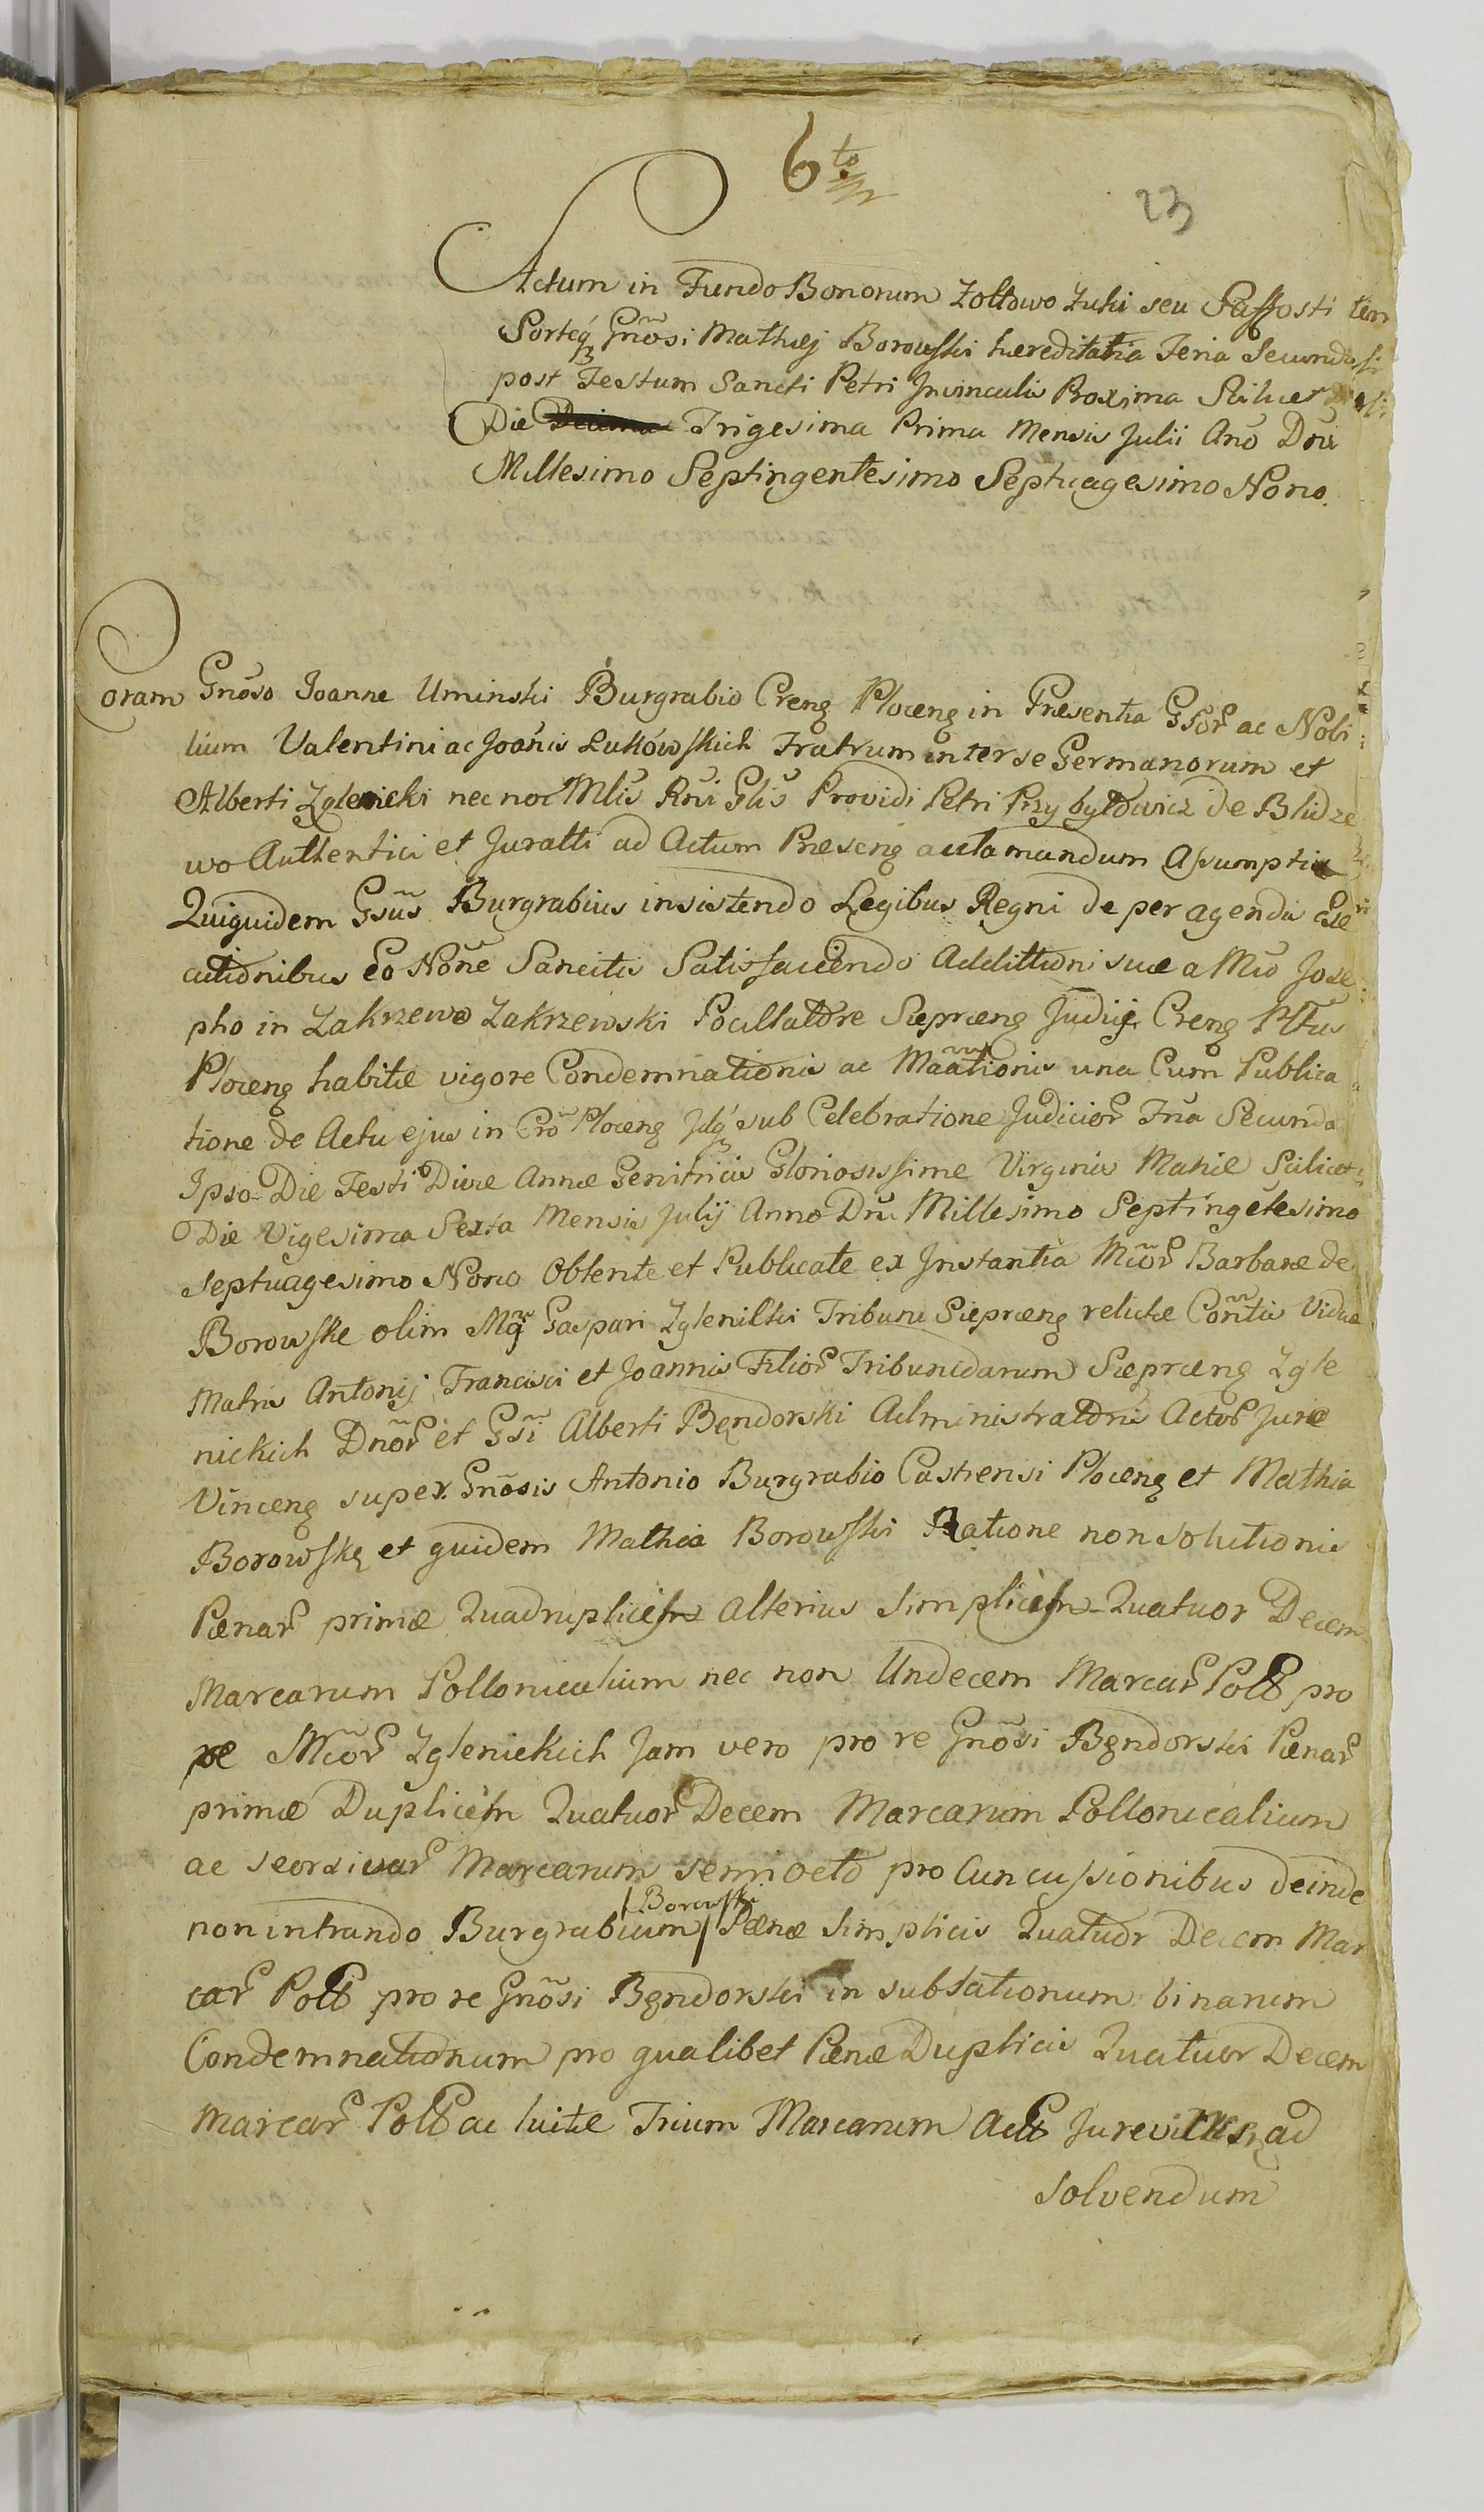 6to
23
Actum in Fundo Bonorum Zołtowo Zuki seu Gaffosti
Sorteq Gnosi Mathiej Borowski haereditatia Feria Secunda
post Festum Sancti Petri Invinculis Proxima Scilicet
Die Trigesima Prima Mensis Julii Ano Dni
Millesimo Septingentesimo Septuagesimo Nono.
Coram Gnoso Joanne Uminski Burgrabio Creng Ploceng in Presentia Gsor ac Nobi
lium Valentini ac Joanis Łukówskich Fratrum inter se Germanorum et
Alberti Zglenicki nec no Mlis Rni Glis Providi Petri Przybyłowicz de Blidze
wo Authentici et Juratti ad Actum Praeseng actamandum Asumptis
Quiquidem Gsus Burgrabius insistendo Legibus Regni de per agendis Exe
cutionibus Eo Noñe Sancitis Satisfaciendo Addittioni suae a Mco Jose
pho in Zakrzewo Zakrzewski Pocillatore Siepraeng Judicij Creng Pltus
Ploceng habitae vigore Condemnationis ac Maãtionis una Cum Publica
tione de Actu ejus in Cro Ploceng Idq sub Celebratione Judicior Fria Secunda
Ipso Die Festi Divae Annae Genitricis Gloriosissime Virginis Mariae Scilicet
Die Vigesima Sexta Mensis Julij Anno Dni Millesimo Septingetesimo
Septuagesimo Nono Obtente et Publicate ex Instantia Mcor Barbarae de
Borowske olim Mgi Gaspari Zglenitski Tribuni Siepraeng relictae Contis Viduae
Matris Antonij Francisci et Joannis Filior Tribunidarum Siepraeng Zgle
nickich Dnor et Gsi Alberti Bęndorski Administratoris Actor Jure
Vinceng super Gnosis Antonio Burgrabio Castrensi Ploceng et Mathia
Borowskę et quidem Mathia Borowski Ratione non Solutionis
Paenar primae Quadruplicis Alterius Simplicis Quatuor Decem
Marcarum Pollonicalium nec non Undecem Marcar Poll pro
re Mcor Zglenickich Jam vero pro re Gnosi Bęndorski Paenar
primae Duplicis Quatuor Decem Marcarum Pollonicalium
ac seorsivar Marcarum semi octo pro Cuncussionibus deinde
non intrando Burgrabium Borowski Paenae Simplicis Quatuor Decem Mar
car Poll pro re Gnosi Bęndorski in sublationum binarum
Condemnationum pro qualibet Paenae Duplicis Quatuor Decem
Marcar Poll ac luitae Trium Marcarum Act Jurevictis ad
solvendum